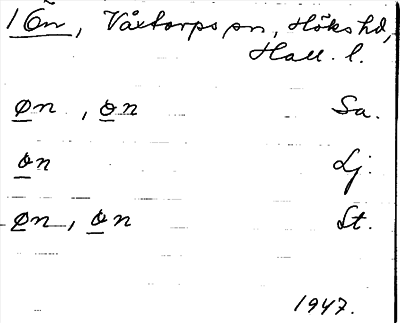 1 Ön, Våxtorps sn, Höks hd,
Hall. l.
øn, øn Sa.
øn Lj.
øn, øn St.
1947.